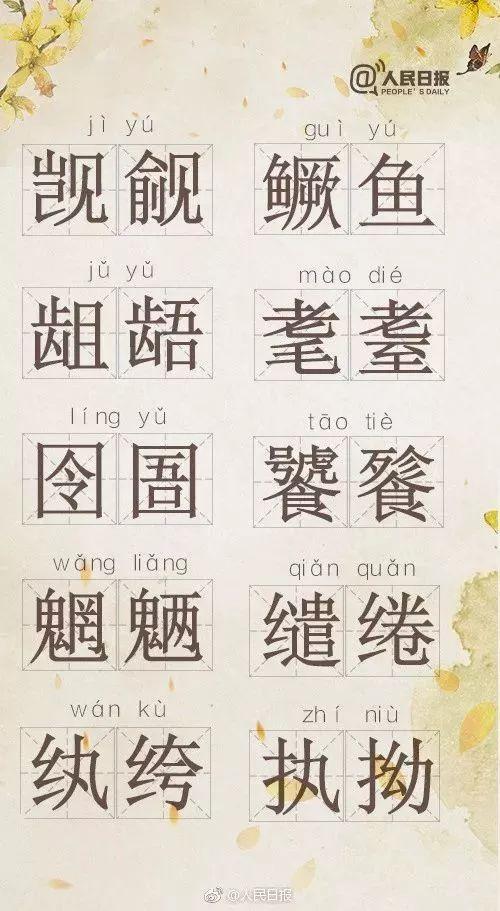 @人民日报
PEOPLE'S DAILY
jì yú
觊觎
guì yú
鳜鱼
jǔ yǔ
龃龉
mào dié
耄耋
líng yǔ
囹圄
tāo tiè
饕餮
wǎng liǎng
魍魉
qiǎn quǎn
缱绻
wán kù
纨绔
zhí niù
执拗
@人民日报